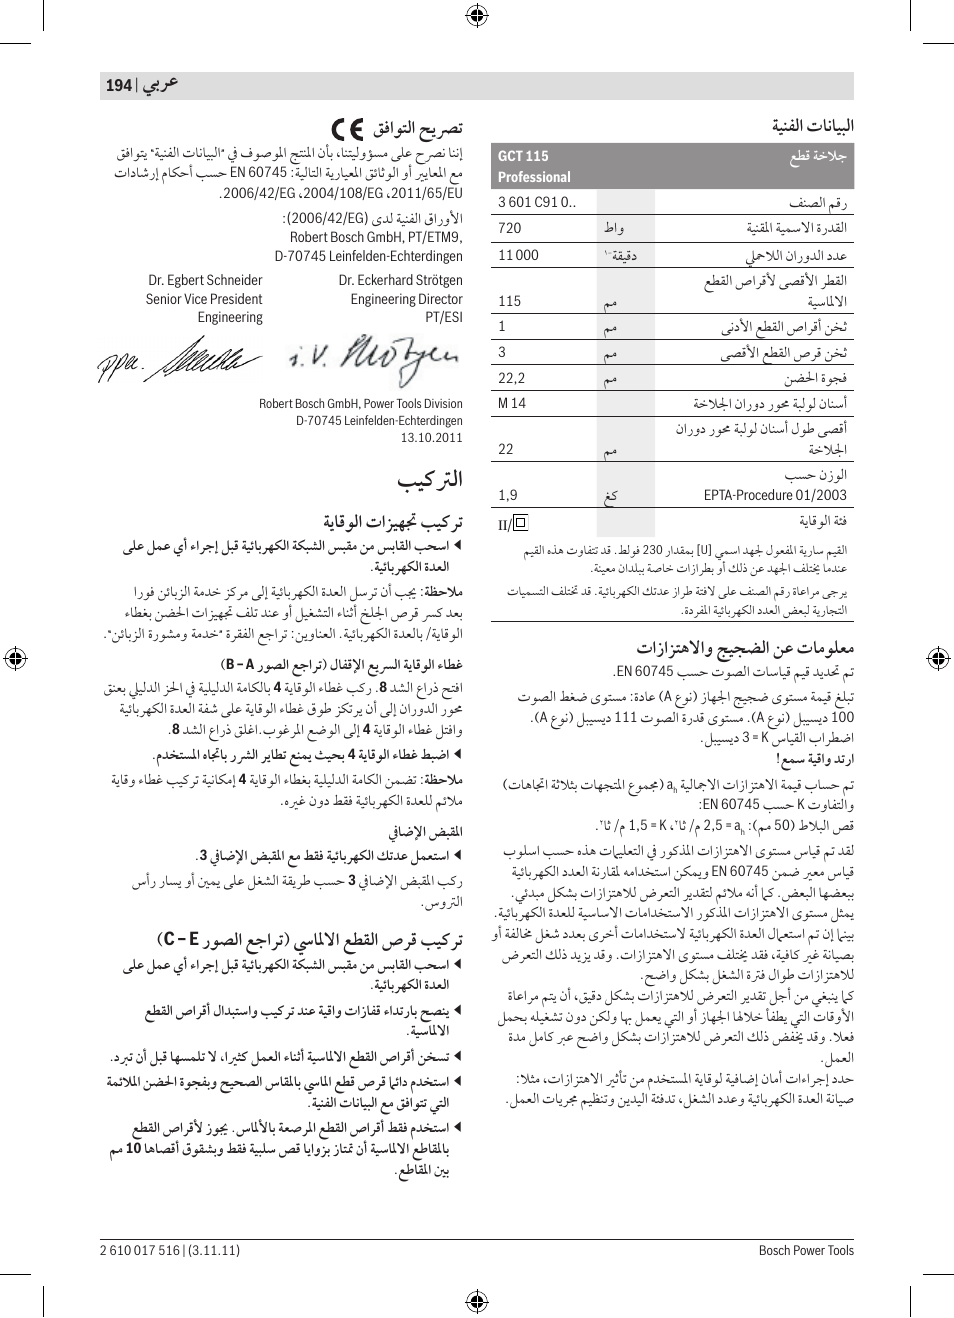 عربي | 194
البيانات الفنية
جلاخة قطع GCT 115
Professional
رقم الصنف 3 601 C91 0..
القدرة الاسمية المقننة واط 720
عدد الدوران اللاحملي دقيقة-١ 11 000
القطر الأقصى لأقراص القطع
الالماسية مم 115
ثخن أقراص القطع الأدنى مم 1
ثخن قرص القطع الأقصى مم 3
فجوة الحضن مم 22,2
أسنان لولبة محور دوران الجلاخة M 14
أقصى طول أسنان لولبة محور دوران
الجلاخة مم 22
الوزن حسب
EPTA-Procedure 01/2003 كغ 1,9
فئة الوقاية /II
القيم سارية المفعول لجهد اسمي [U] بمقدار 230 فولط. قد تتفاوت هذه القيم
عندما يختلف الجهد عن ذلك أو بطرازات خاصة ببلدان معينة.
يرجی مراعاة رقم الصنف على لافتة طراز عدتك الكهربائية. قد تختلف التسميات
التجارية لبعض العدد الكهربائية المفردة.
معلومات عن الضجيج والاهتزازات
تم تحديد قيم قياسات الصوت حسب EN 60745.
تبلغ قيمة مستوى ضجيج الجهاز (نوع A) عادة: مستوى ضغط الصوت
100 ديسيبل (نوع A). مستوى قدرة الصوت 111 ديسيبل (نوع A).
اضطراب القياس K = 3 ديسيبل.
ارتد واقية سمع!
تم حساب قيمة الاهتزازات الاجمالية ah (مجموع المتجهات بثلاثة اتجاهات)
والتفاوت K حسب EN 60745:
قص البلاط (50 مم): ah = 2,5 م/ ثا٢، K = 1,5 م/ ثا٢.
لقد تم قياس مستوى الاهتزازات المذكور في التعليمات هذه حسب اسلوب
قياس معير ضمن EN 60745 ويمكن استخدامه لمقارنة العدد الكهربائية
ببعضها البعض. كما أنه ملائم لتقدير التعرض للاهتزازات بشكل مبدئي.
يمثل مستوى الاهتزازات المذكور الاستخدامات الاساسية للعدة الكهربائية.
بينما إن تم استعمال العدة الكهربائية لاستخدامات أخرى بعدد شغل مخالفة أو
بصيانة غير كافية، فقد يختلف مستوى الاهتزازات. وقد يزيد ذلك التعرض
للاهتزازات طوال فترة الشغل بشكل واضح.
كما ينبغي من أجل تقدير التعرض للاهتزازات بشكل دقيق، أن يتم مراعاة
الأوقات التي يطفأ خلالها الجهاز أو التي يعمل بها ولكن دون تشغيله بحمل
فعلا. وقد يخفض ذلك التعرض للاهتزازات بشكل واضح عبر كامل مدة
العمل.
حدد إجراءات أمان إضافية لوقاية المستخدم من تأثير الاهتزازات، مثلا:
صيانة العدة الكهربائية وعدد الشغل، تدفئة اليدين وتنظيم مجريات العمل.
تصريح التوافق CE
إننا نصرح على مسؤوليتنا، بأن المنتج الموصوف في "البيانات الفنية" يتوافق
مع المعايير أو الوثائق المعيارية التالية: EN 60745 حسب أحكام إرشادات
2011/65/EU، 2004/108/EG، 2006/42/EG.
الأوراق الفنية لدى (2006/42/EG):
Robert Bosch GmbH, PT/ETM9,
D-70745 Leinfelden-Echterdingen
Dr. Egbert Schneider Dr. Eckerhard Strötgen
Senior Vice President Engineering Director
Engineering PT/ESI
ppa. i.V. Strötgen
Robert Bosch GmbH, Power Tools Division
D-70745 Leinfelden-Echterdingen
13.10.2011
التركيب
تركيب تجهيزات الوقاية
◀ اسحب القابس من مقبس الشبكة الكهربائية قبل إجراء أي عمل على
العدة الكهربائية.
ملاحظة: يجب أن ترسل العدة الكهربائية إلى مركز خدمة الزبائن فورا
بعد كسر قرص الجلخ أثناء التشغيل أو عند تلف تجهيزات الحضن بغطاء
الوقاية/ بالعدة الكهربائية. العناوين: تراجع الفقرة "خدمة ومشورة الزبائن".
غطاء الوقاية السريع الإقفال (تراجع الصور A – B)
افتح ذراع الشد 8. ركب غطاء الوقاية 4 بالكامة الدليلية في الحز الدليلي بعنق
محور الدوران إلى أن يرتكز طوق غطاء الوقاية على شفة العدة الكهربائية
وافتل غطاء الوقاية 4 إلى الوضع المرغوب.اغلق ذراع الشد 8.
◀ اضبط غطاء الوقاية 4 بحيث يمنع تطاير الشرر باتجاه المستخدم.
ملاحظة: تضمن الكامة الدليلية بغطاء الوقاية 4 إمكانية تركيب غطاء وقاية
ملائم للعدد الكهربائية فقط دون غيره.
المقبض الإضافي
◀ استعمل عدتك الكهربائية فقط مع المقبض الإضافي 3.
ركب المقبض الإضافي 3 حسب طريقة الشغل على يمين أو يسار رأس
التروس.
تركيب قرص القطع الالماسي (تراجع الصور C – E)
◀ اسحب القابس من مقبس الشبكة الكهربائية قبل إجراء أي عمل على
العدة الكهربائية.
◀ ينصح بارتداء قفازات واقية عند تركيب واستبدال أقراص القطع
الالماسية.
◀ تسخن أقراص القطع الالماسية أثناء العمل كثيرا، لا تلمسها قبل أن تبرد.
◀ استخدم دائما قرص قطع الماسي بالمقاس الصحيح وبفجوة الحضن الملائمة
التي تتوافق مع البيانات الفنية.
◀ استخدم فقط أقراص القطع المرصعة بالألماس. يجوز لأقراص القطع
بالمقاطع الالماسية أن تمتاز بزوايا قص سلبية فقط وبشقوق أقصاها 10 مم
بين المقاطع.
2 610 017 516 | (3.11.11) Bosch Power Tools